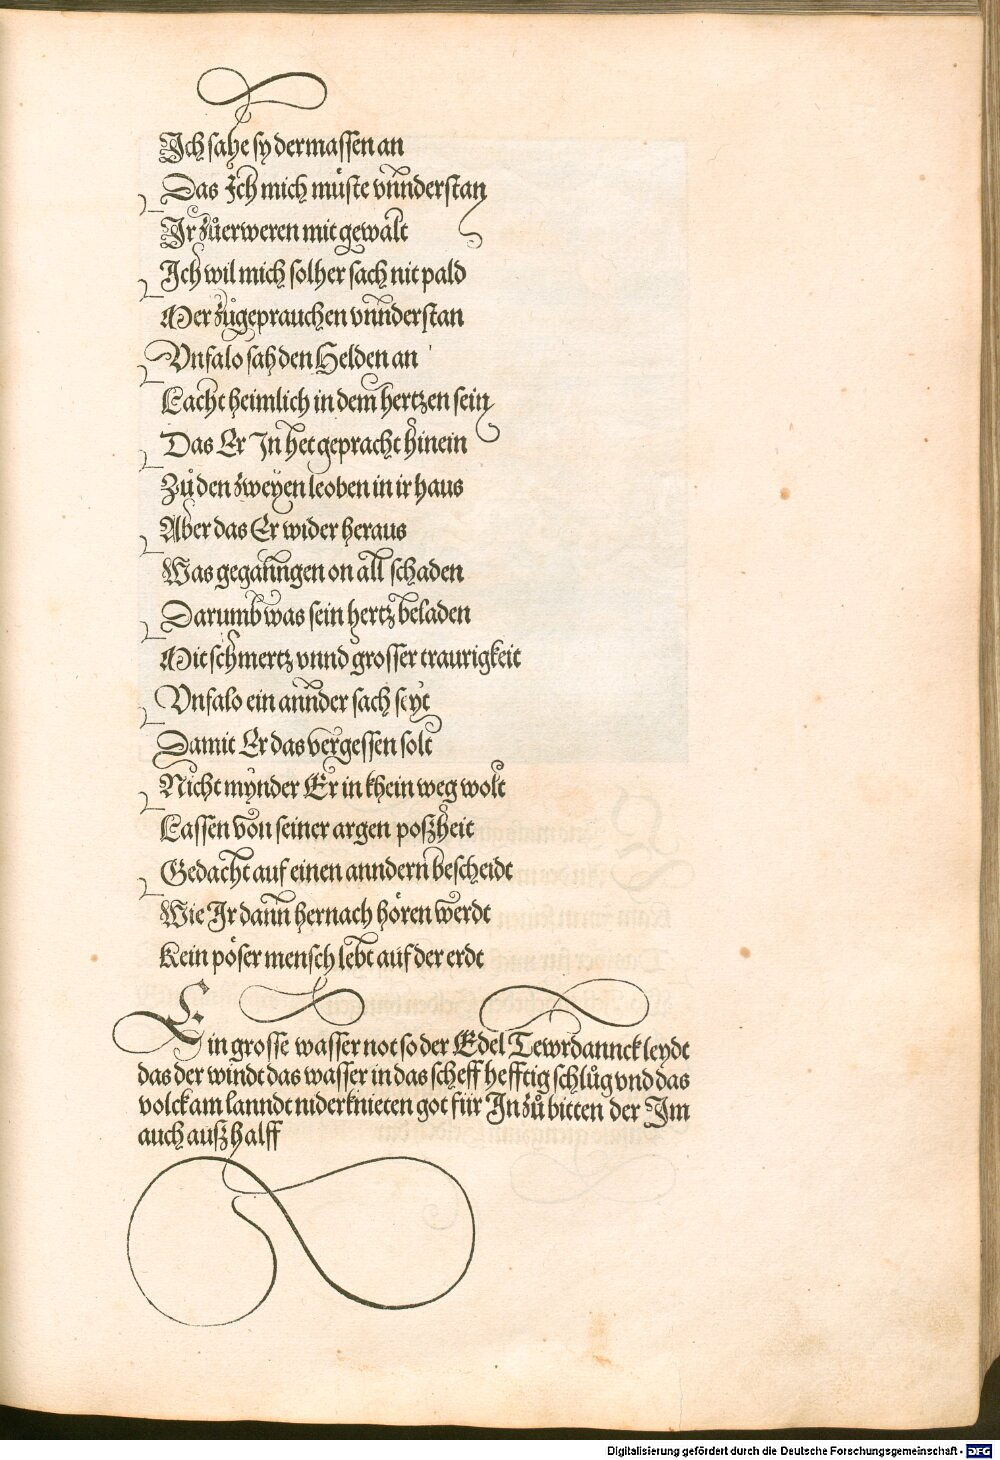 Ich sahe sy dermassen an
Das Ich mich müste vnnderstan
Ir zůerweren mit gewalt
Ich wil mich solher sach nit pald
Mer zůgeprauchen vnnderstan
Vnfalo sah den Helden an
Lacht heimlich in dem hertzen sein
Das Er In het gepracht hinein
Zů den zweyen leoben in ir haus
Aber das Er wider heraus
Was geganngen on all schaden
Darumb was sein hertz beladen
Mit schmertz vnnd grosser traurigkeit
Vnfalo ein annder sach seyt
Damit Er das vergessen solt
Nicht mynder Er in khein weg wolt
Lassen von seiner argen poszheit
Gedacht auf einen anndern bescheidt
Wie Ir dann hernach hören werdt
Kein pöser mensch lebt auf der erdt
Ein grosse wasser not so der Edel Tewrdannck leydt
das der windt das wasser in das scheff hefftig schlůg vnd das
volck am lanndt niderknieten got für In zů bitten der Im
auch ausz halff
Digitalisierung gefördert durch die Deutsche Forschungsgemeinschaft - DFG